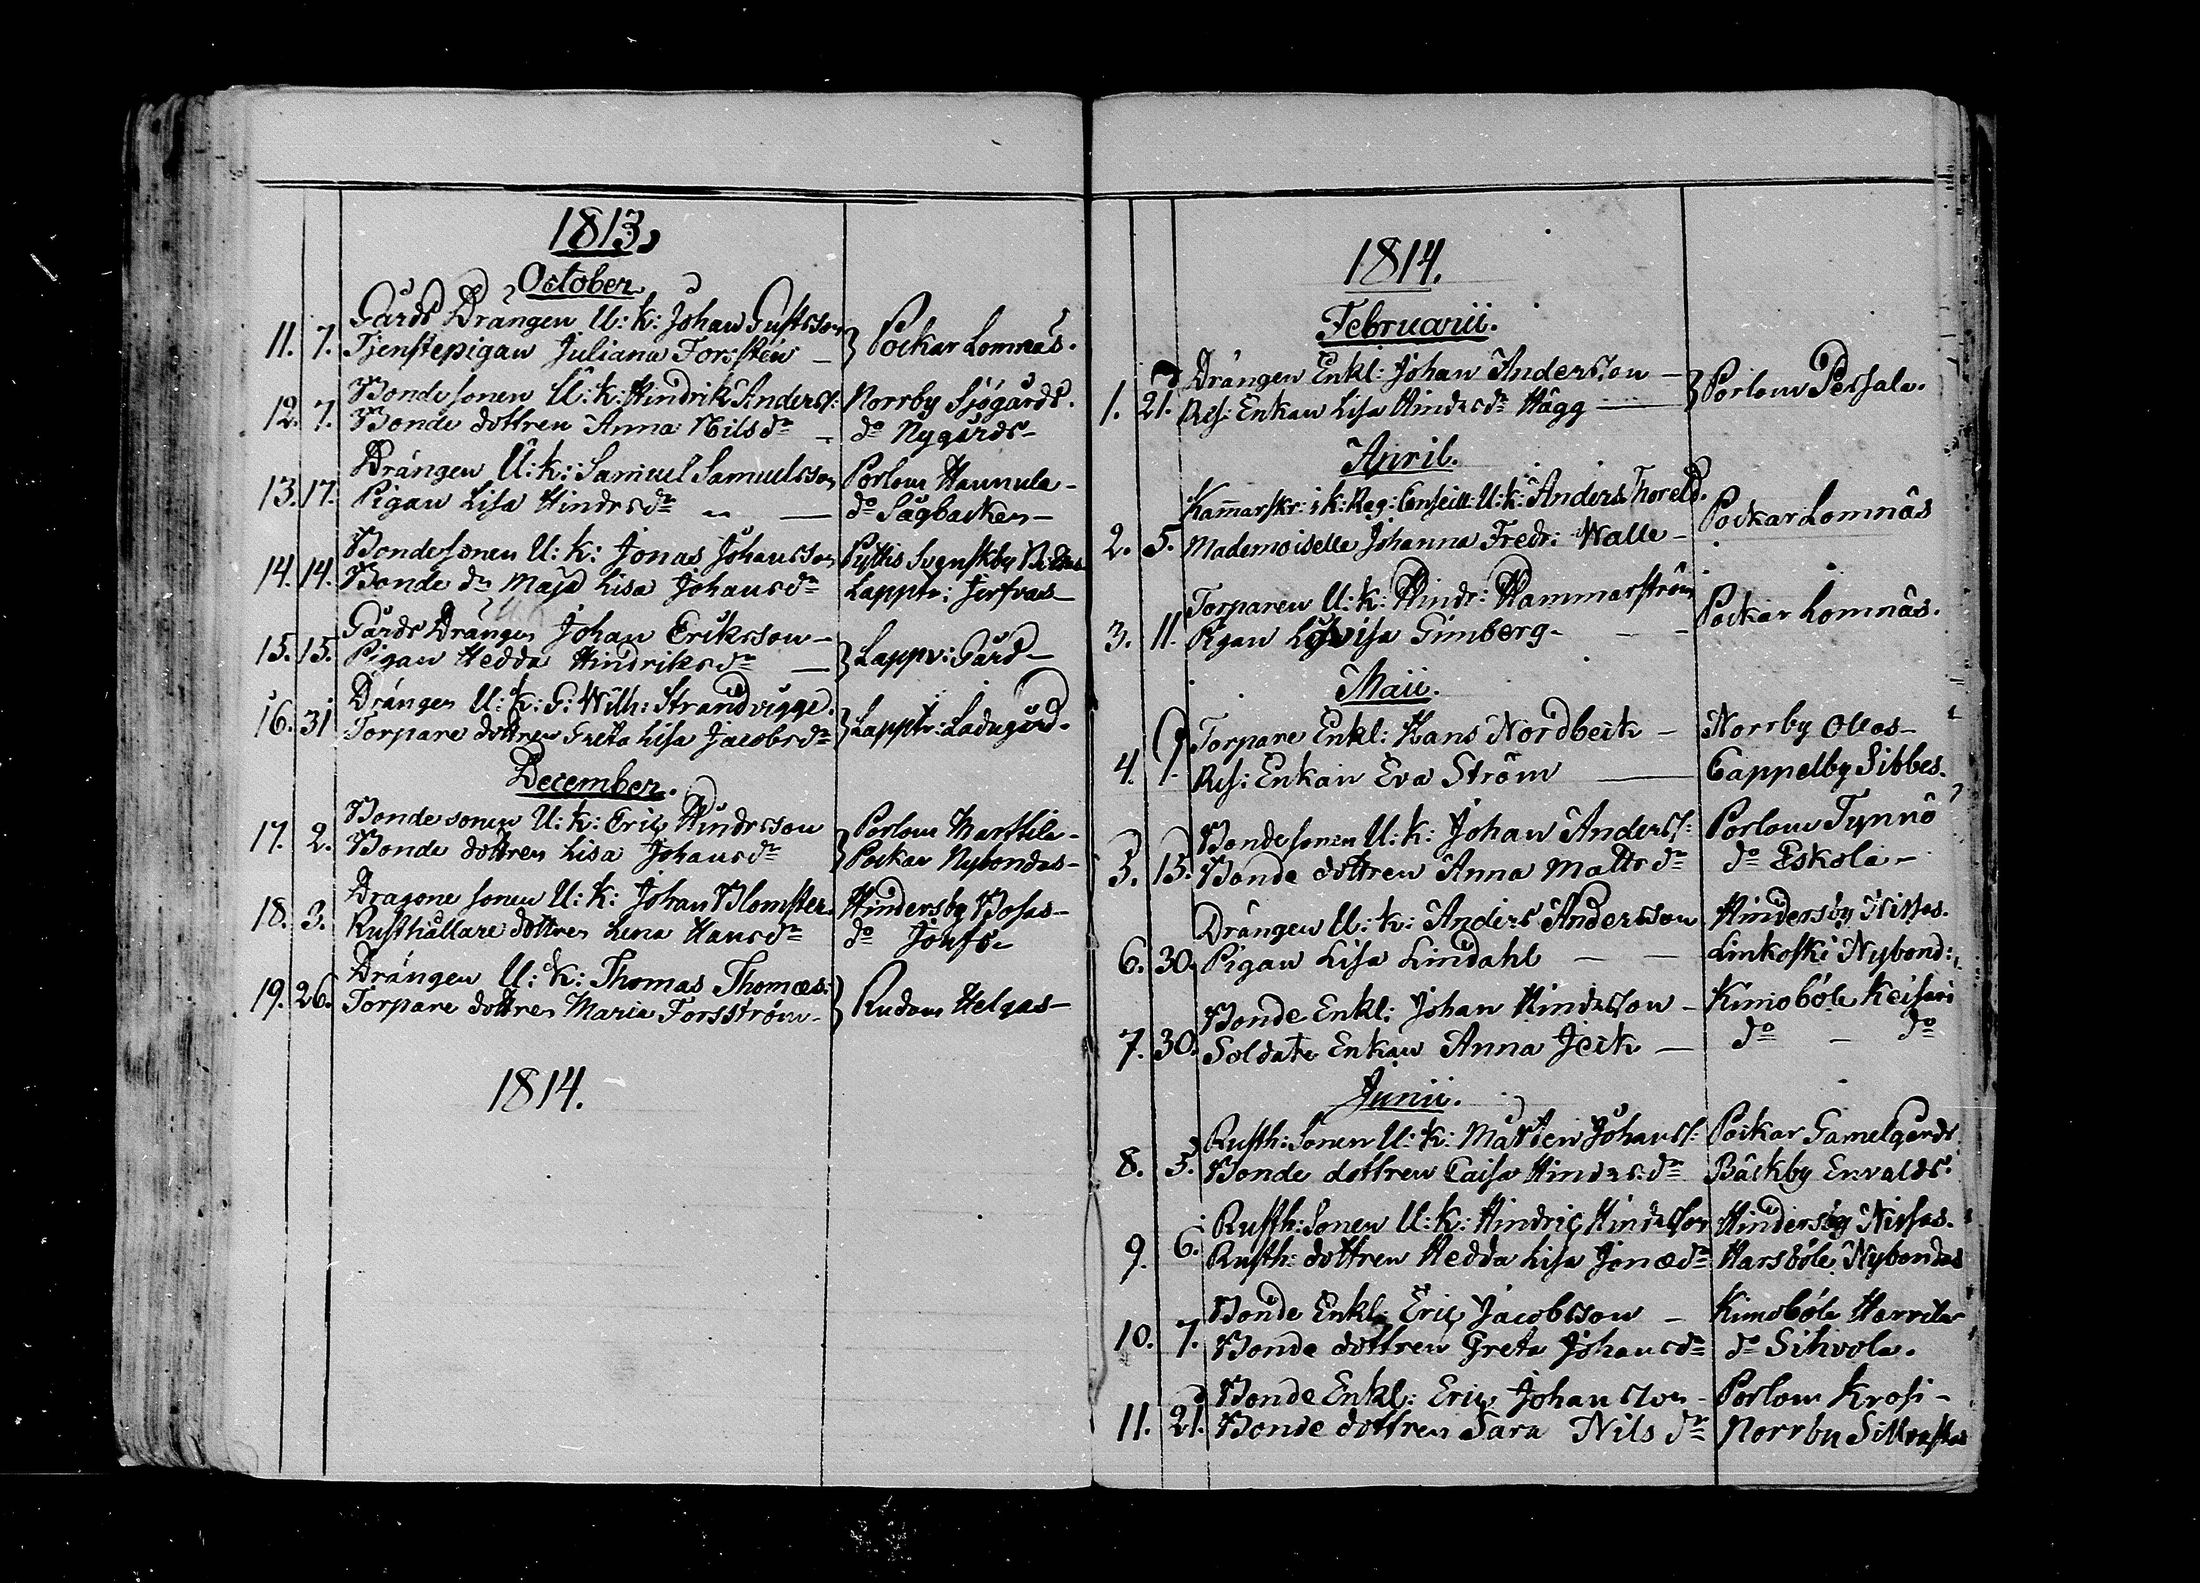 1813,
October
Gårds Drängen U: k: Johan Gustsson
11. 7. Tjenstepigan Juliana Forstén — } Pockar Lomnäs.
Bondesonen U: k: Hindrik Anderss: Norrby Sjögårds.
12. 7. Bonde dottren Anna Nilsdr — do Nygårds—
Drängen U: k: Samuel Samuelsson Porlom Hannula-
13. 17. Pigan Lisa Hindrsdr — do Sågbacken—
Bondesonen U: k: Jonas Johansson Pyttis Svenskby
14. 14. Bonde dr Maja Lisa Johansdr Lapptr: Jerfvas—
Gårds Drängen Johan Eriksson—
15. 15. Pigan Hedda Hindriksdr — } Lappv: Gård—
Drängen U: k: G: Wilh: Strandvigge.
16. 31 Torpare dottren Greta Lisa Jacobsdr } Lapptr: Ladugård.
December.
Bondesonen U: k: Eriç Hindrsson } Porlom Marttila-
17. 2. Bonde dottren Lisa Johansdr Pockar Nybondas-
Dragone sonen U: k: Johan Blomster. Hindersby Bosas-
18. 3. Rusthållare dottren Lena Hansdr do Jonss-
Drängen U: k: Thomas Thomas:
19. 26. Torpare dottren Maria Forsström- } Rudom Helgas—
1814.
1814.
Februarii.
Drängen Enkl: Johan Andersson —
1. 21. Res: Enkan Lisa Hindrsdr Hägg — } Porlom Persala.
April.
Kammarskr: i k: Reg: Conseill: U: k: Anders Thoreld.
2. 5. Mademoiselle Johanna Fredr: Walle — Pockar Lomnäs
Torparen U: k: Hindr: Hammarström
3. 11. Pigan Lovisa Gimberg- — - Pockar Lomnäs.
Maii.
Torpare Enkl: Hans Nordbeck — Norrby Ollas—
4. 1. Res: Enkan Eva Ström — Cappelby Sibbes.
Bondesonen U: k: Johan Anderss: Porlom Tynnö
5. 15. Bonde dottren Anna Mattsdr do Eskola-
Drängen U: k: Anders Andersson Hindersby Nissas.
6. 30. Pigan Lisa Lindahl — — Linkoski Nybond:
Bonde Enkl: Johan Hindrsson — Kimoböle Keisari
7. 30. Soldats Enkan Anna Jeck — do — do
Junii.
Rusth: Sonen U: k: Mårten Johanss: Pockar Gamelgårds
8. 5. Bonde dottren Caisa Hindrsdr Bäckby Envalds.
Rusth: Sonen U: k: Hindriç Hindrsson Hindersby Nissas.
9. 6. Rusth: dottren Hedda Lisa Jonædr Harsböle Nybondas
Bonde Enkl: Eriç Jacobsson — Kimoböle Herrila
10. 7. Bonde dottren Greta Johansdr do Sihvola.
Bonde Enkl: Eriç Johansson - Porlom Krosi-
11. 21. Bonde dottren Sara Nilsdr Norrby